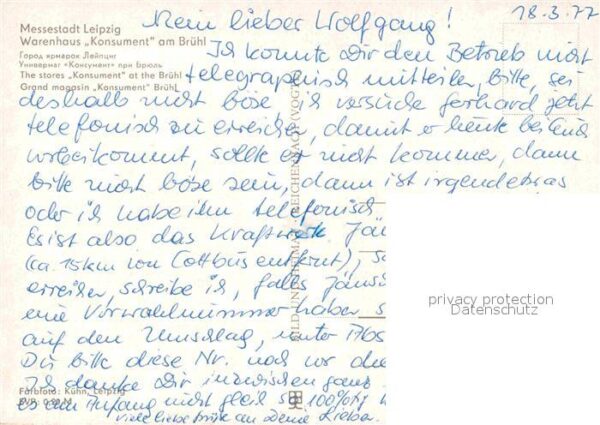 Mein lieber Wolfgang!
18.3.77
Messestadt Leipzig
Warenhaus „Konsument" am Brühl
Город ярмарок Лейпциг
Универмаг «Консумент» при Брюль
The stores „Konsument" at the Brühl
Grand magasin „Konsument" Brühl
Ich konnte Dir den Betrieb nicht
telegraphisch mitteilen, bitte, sei
deshalb nicht böse ich versuche Gerhard jetzt
telefonisch zu erreichen, damit er heute bei Euch
vorbeikommt, sollte er nicht kommen, dann
bitte nicht böse sein, dann ist irgendetwas
oder ich habe ihn telefonisch
Es ist also das Kraftwerk Jän
(ca. 15 km von Cottbus entfernt),
erreichen schreibe ich, falls Jäns
eine Vorwahlnummer haben
auf den Umschlag, unter
Du bitte diese Nr. noch vor
Ich danke Dir inzwischen ganz
es am Anfang nicht gleich 100%ig
viele liebe Grüße an Deine Lieben
Farbfoto: Kühn, Leipzig
BILD UND HEIMAT REICHENBACH (VOGTL
privacy protection
Datenschutz